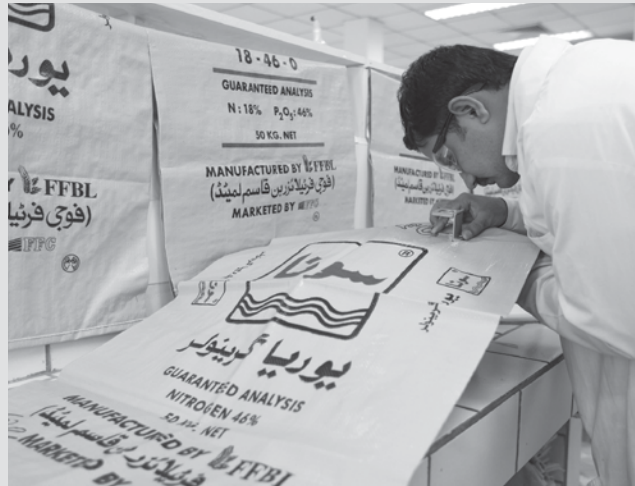 یوریا
ALYSIS
%
FFBL
(فوجی فرٹیلا
FFC
18-46-0
GUARANTEED ANALYSIS
N : 18% P₂O₅ : 46%
50 KG. NET
MANUFACTURED BY FFBL
(فوجی فرٹیلائزر بن قاسم لمیٹڈ)
MARKETED BY FFC
MANUFACTURED BY
(فوجی فرٹیلائزر بن قاسم لمیٹڈ)
MARKETED BY
سونا
®
یوریا گرینولر
GUARANTEED ANALYSIS
NITROGEN 46%
50 NET
MANUFACTURED BY FFBL
(فوجی فرٹیلائزر بن قاسم لمیٹڈ)
MARKETED BY
سونا
یوریا گرینولر